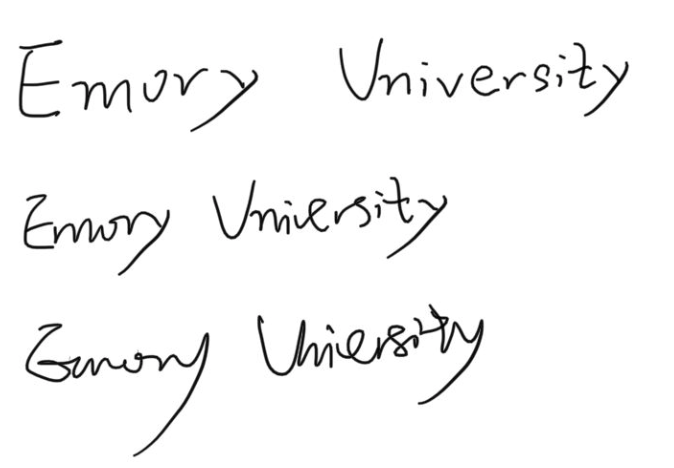 Emory University
Emory University
Emory University